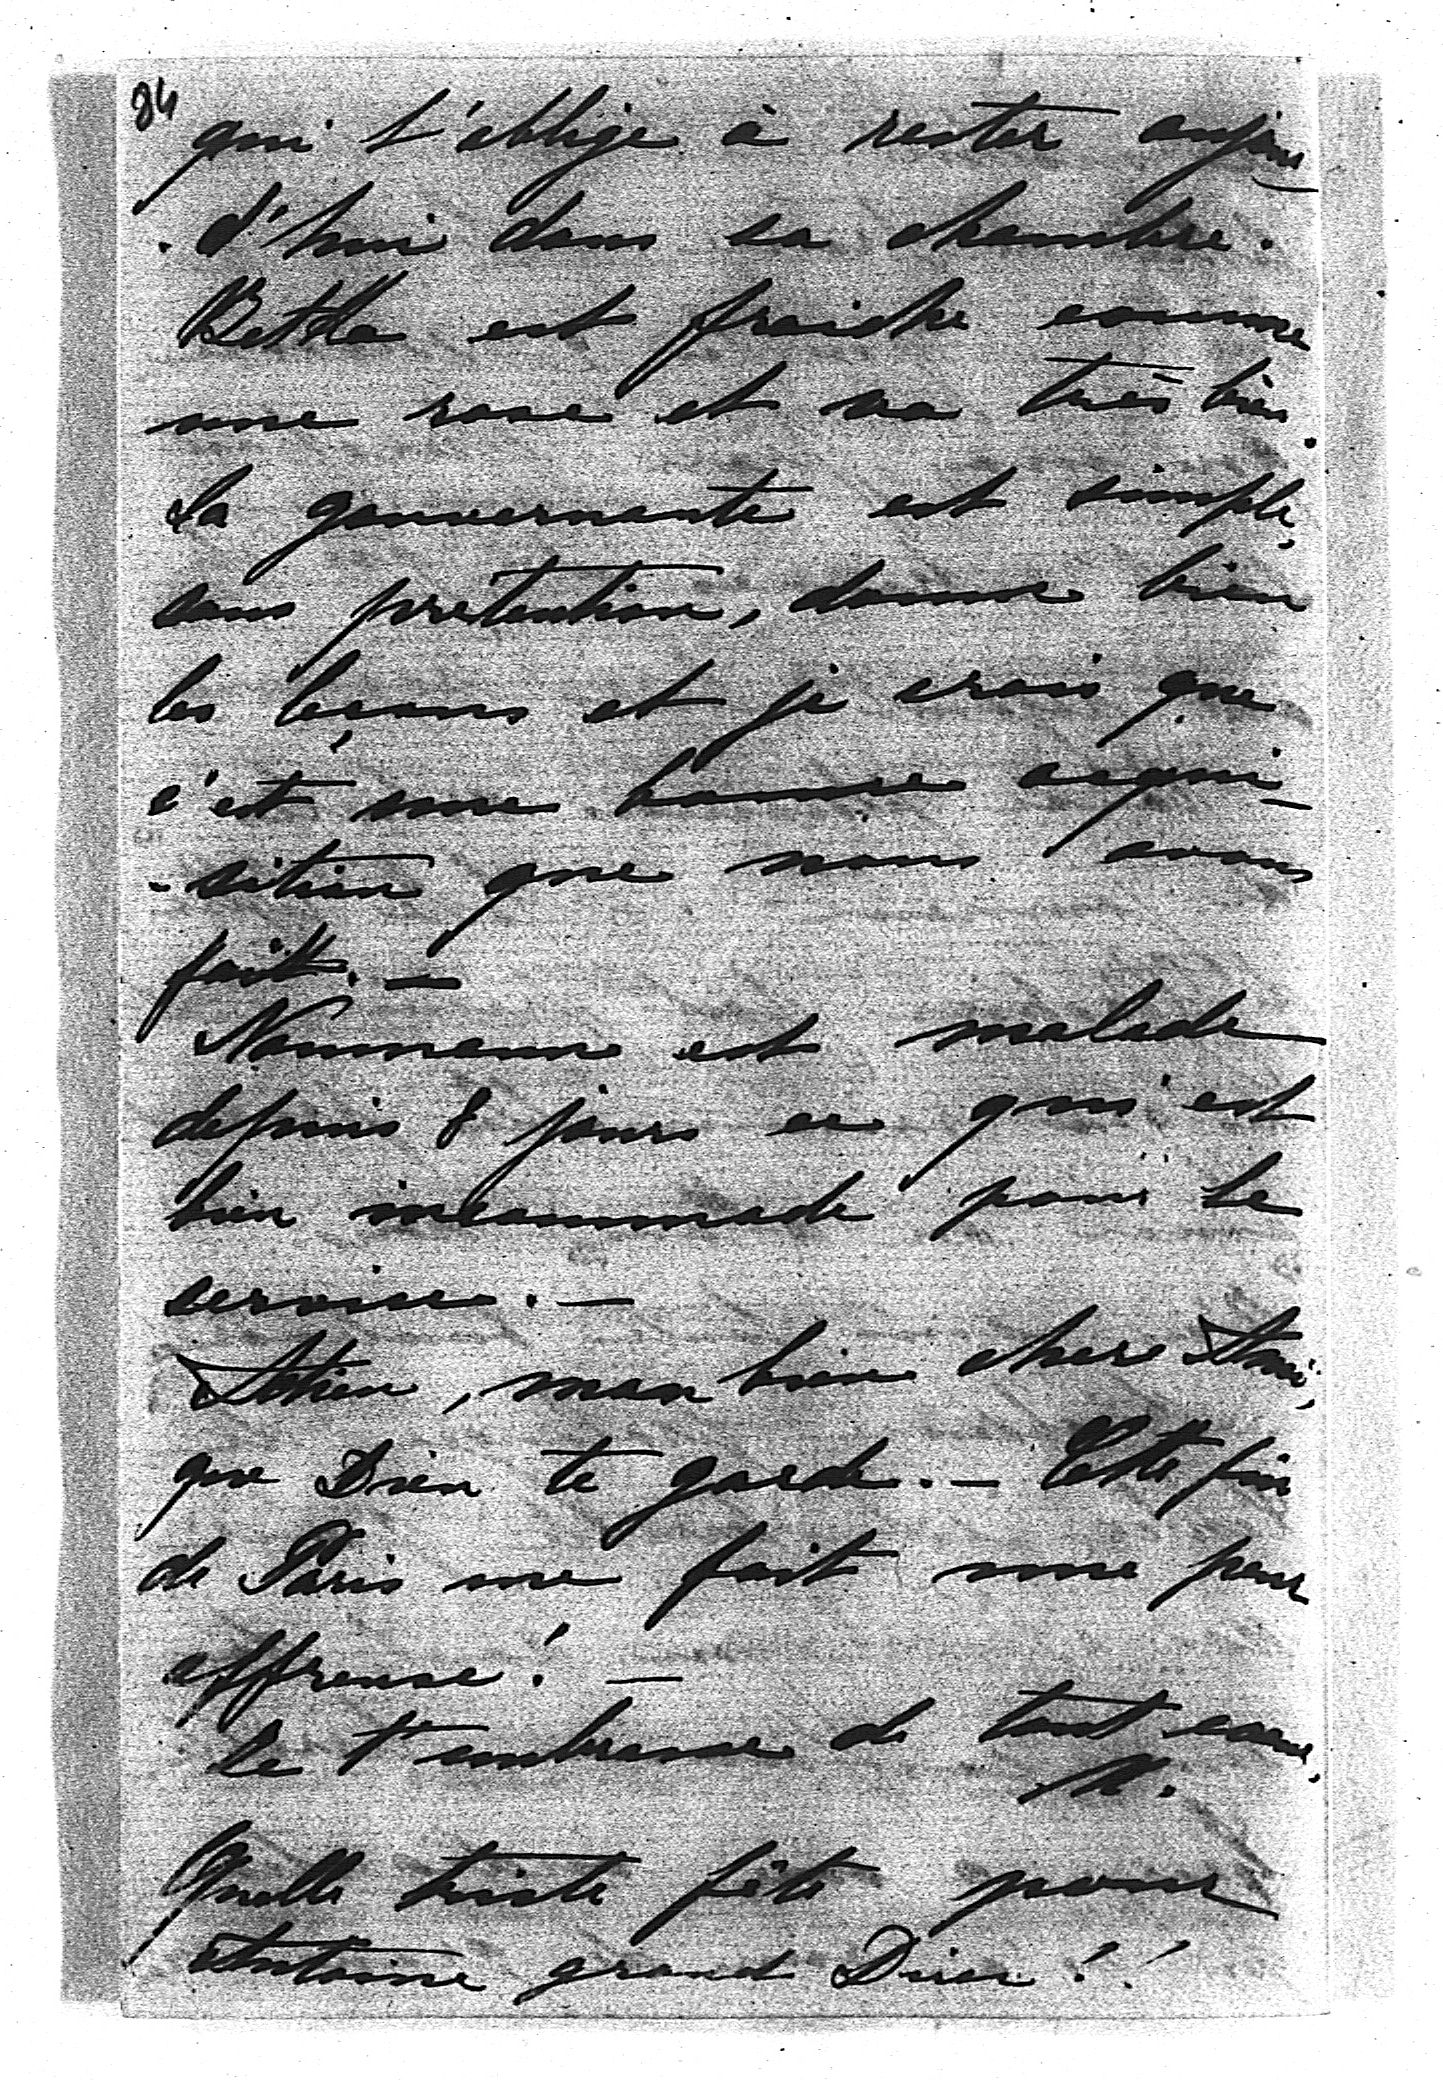 84
qui l'oblige à rester aujour
d'hui dans sa chambre.
Betka est fraiche comme
une rose et va très bien.
La gouvernante est simple,
sans pretention, donne bien
les leçons et je crois que
c'est une bonne acqui-
-sition que nous avons
fait. —
Naumann est malade
depuis 8 jours ce qui est
bien incommode pour le
service. —
Adieu, mon bien cher Ami,
que Dieu te garde. — Cette fin
de Paris me fait une peur
affreuse! —
Je t'embrasse de tout cœur.
M.
Quelle triste fête pour
Antoine grand Dieu!!